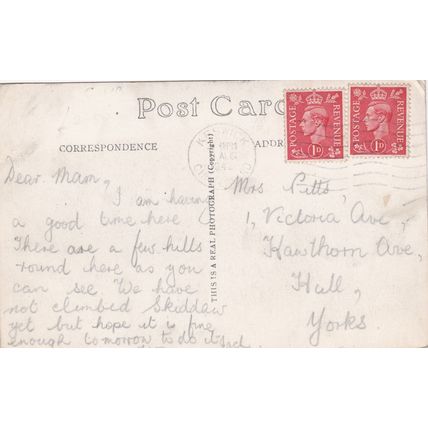 Post Card
CORRESPONDENCE
ADDR
KESWICK
POSTAGE REVENUE 1D
POSTAGE REVENUE 1D
THIS IS A REAL PHOTOGRAPH (Copyright)
Dear Mam,
I am having
a good time here
There are a few hills
round here as you
can see We have
not climbed Skiddaw
yet but hope it is fine
enough tomorrow to do it
Mrs Pitts
1, Victoria Ave,
Hawthorn Ave,
Hull,
Yorks.